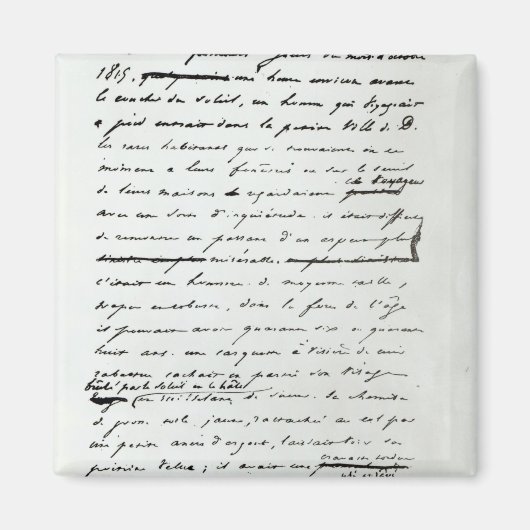 premiers jours du mois d'octobre
1815, quelques une heure environ avant
le coucher du soleil, un homme qui voyageait
à pied entrait dans la petite ville de D.
les rares habitants qui se trouvaient en ce
moment à leurs fenêtres ou sur le seuil
le voyageur
de leurs maisons regardaient
avec une sorte d'inquiétude. il était difficile
de rencontrer un passant d'un aspect plus
misérable.
c'était un homme de moyenne taille,
trapu et robuste, dans la force de l'âge
il pouvait avoir quarante six ou quarante
huit ans. une casquette à visière de cuir
rabattue cachait en partie son visage
brûlé par le soleil et le hâle
et ruisselant de sueur. sa chemise
de grosse toile jaune, rattachée au col par
une petite ancre d'argent, laissait voir sa
poitrine velue ; il avait une
cravate tordue